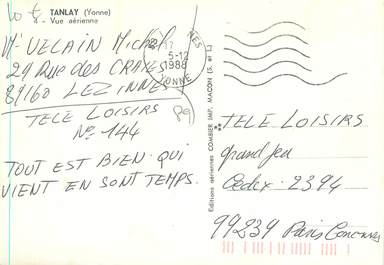 TANLAY (Yonne)
- Vue aérienne
Mr VELAIN Michel
29 Rue des CRAIES
89160 LEZINNES
TELE LOISIRS
N° 144
TOUT EST BIEN QUI
VIENT EN SONT TEMPS.
5-12
1988
YONNE
Editions aériennes COMBIER IMP. MACON (S. et L.)
TELE LOISIRS
grand jeu
Cedex 2394
99239 Paris Concours